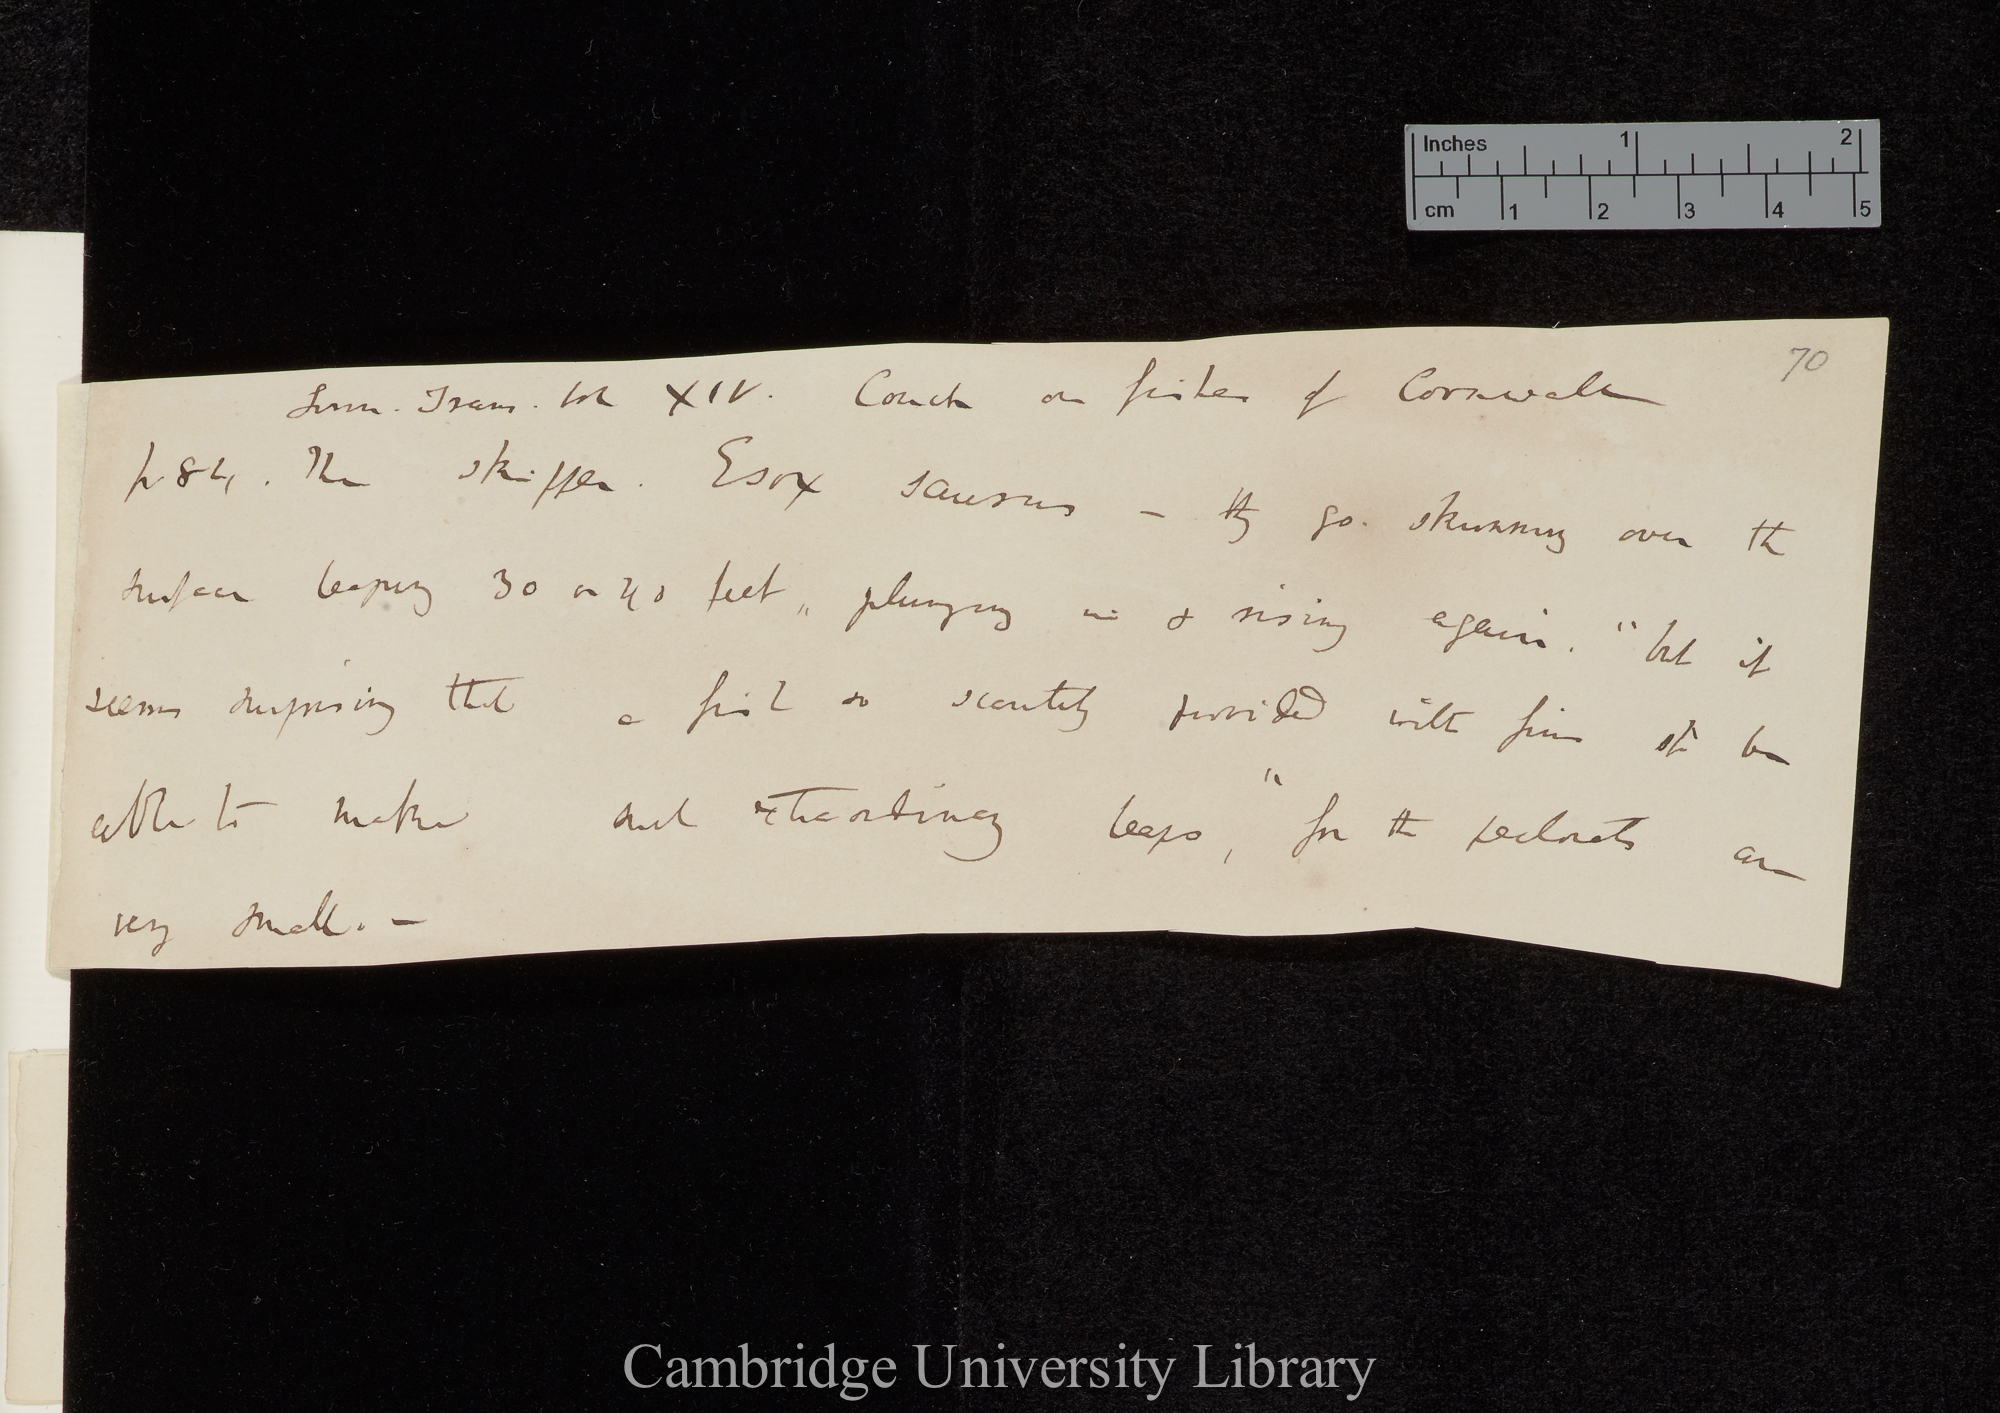 Inches 1 2
cm 1 2 3 4 5
70
Linn. Trans. vol XIV. Couch on fishes of Cornwall
p 84. The skipper. Esox saurus — they go. skimming over the
surface leaping 30 or 40 feet, plunging in & rising again. "but it
seems surprising that a fish so scantily provided with fins shd be
able to make such extraordinary leaps," for the pectorals are
very small. —
Cambridge University Library